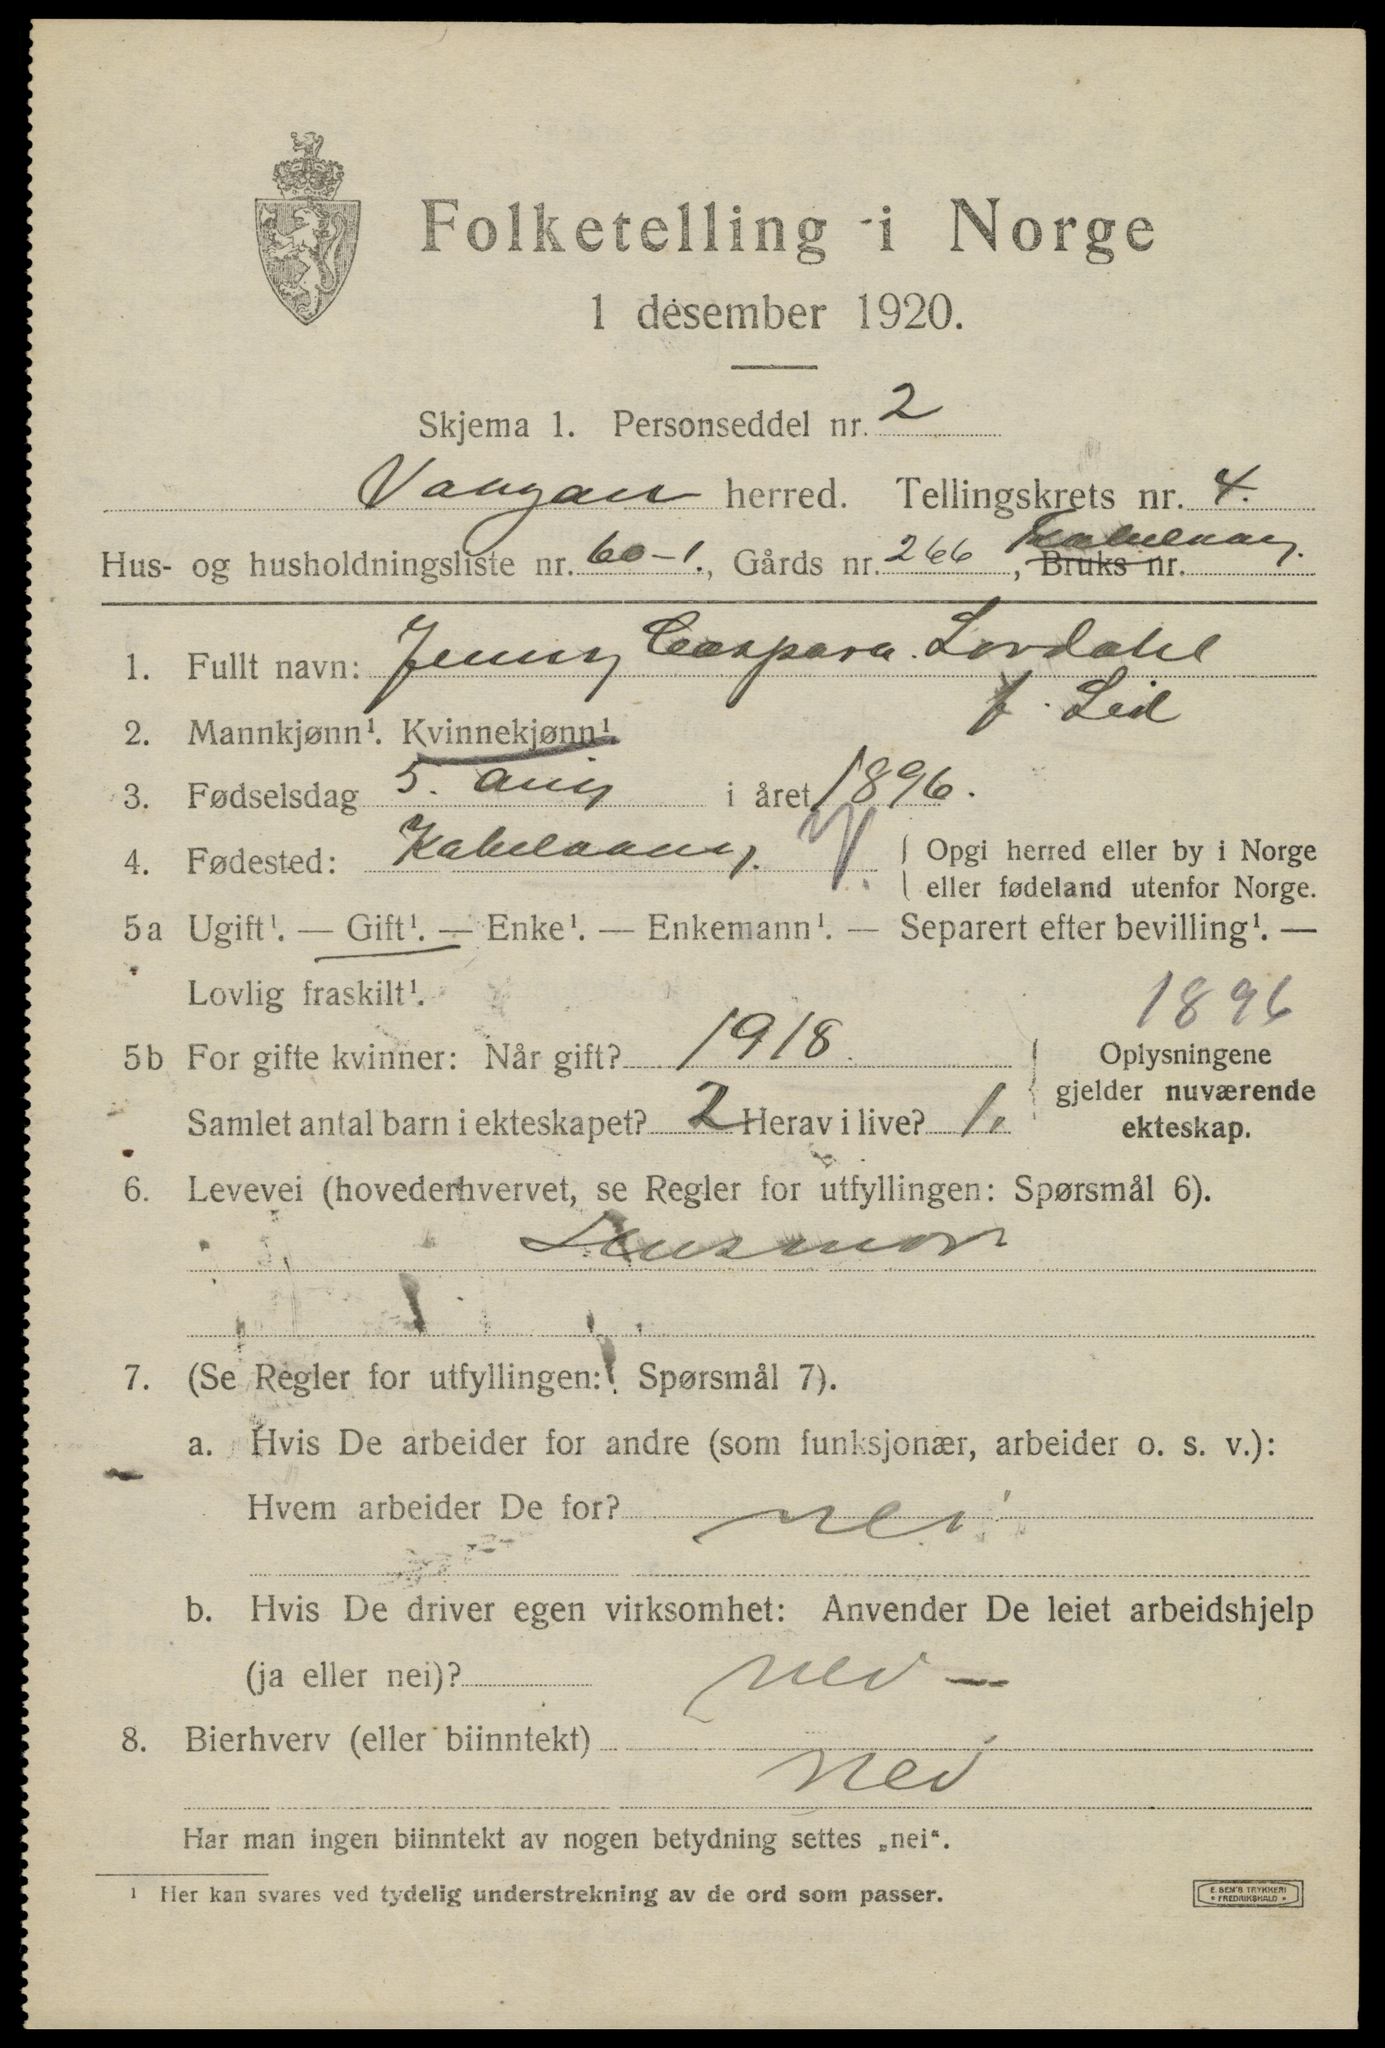 Folketelling i Norge
1 desember 1920.
Skjema 1. Personseddel nr. 2
Vaagan herred. Tellingskrets nr. 4.
Hus- og husholdningsliste nr. 60-1., Gårds nr. 266, Bruks nr. Kabelvaag.
1. Fullt navn: Jenny Caspara Lordahl
f. Lid
2. Mannkjønn¹. Kvinnekjønn¹.
3. Fødselsdag 5. aug i året 1896.
4. Fødested: Kabelvaag. { Opgi herred eller by i Norge
eller fødeland utenfor Norge.
5a Ugift¹. — Gift¹. — Enke¹. — Enkemann¹. — Separert efter bevilling¹. —
Lovlig fraskilt¹.
1896
5b For gifte kvinner: Når gift? 1918. Oplysningene
gjelder nuværende
Samlet antal barn i ekteskapet? 2 Herav i live? 1. ekteskap.
6. Levevei (hovederhvervet, se Regler for utfyllingen: Spørsmål 6).
Husmor
7. (Se Regler for utfyllingen: Spørsmål 7).
a. Hvis De arbeider for andre (som funksjonær, arbeider o. s. v.):
Hvem arbeider De for? nei
b. Hvis De driver egen virksomhet: Anvender De leiet arbeidshjelp
(ja eller nei)? nei —
8. Bierhverv (eller biinntekt)
nei
Har man ingen biinntekt av nogen betydning settes „nei“.
¹ Her kan svares ved tydelig understrekning av de ord som passer.
E. SEM'S TRYKKERI
* FREDRIKSHALD *